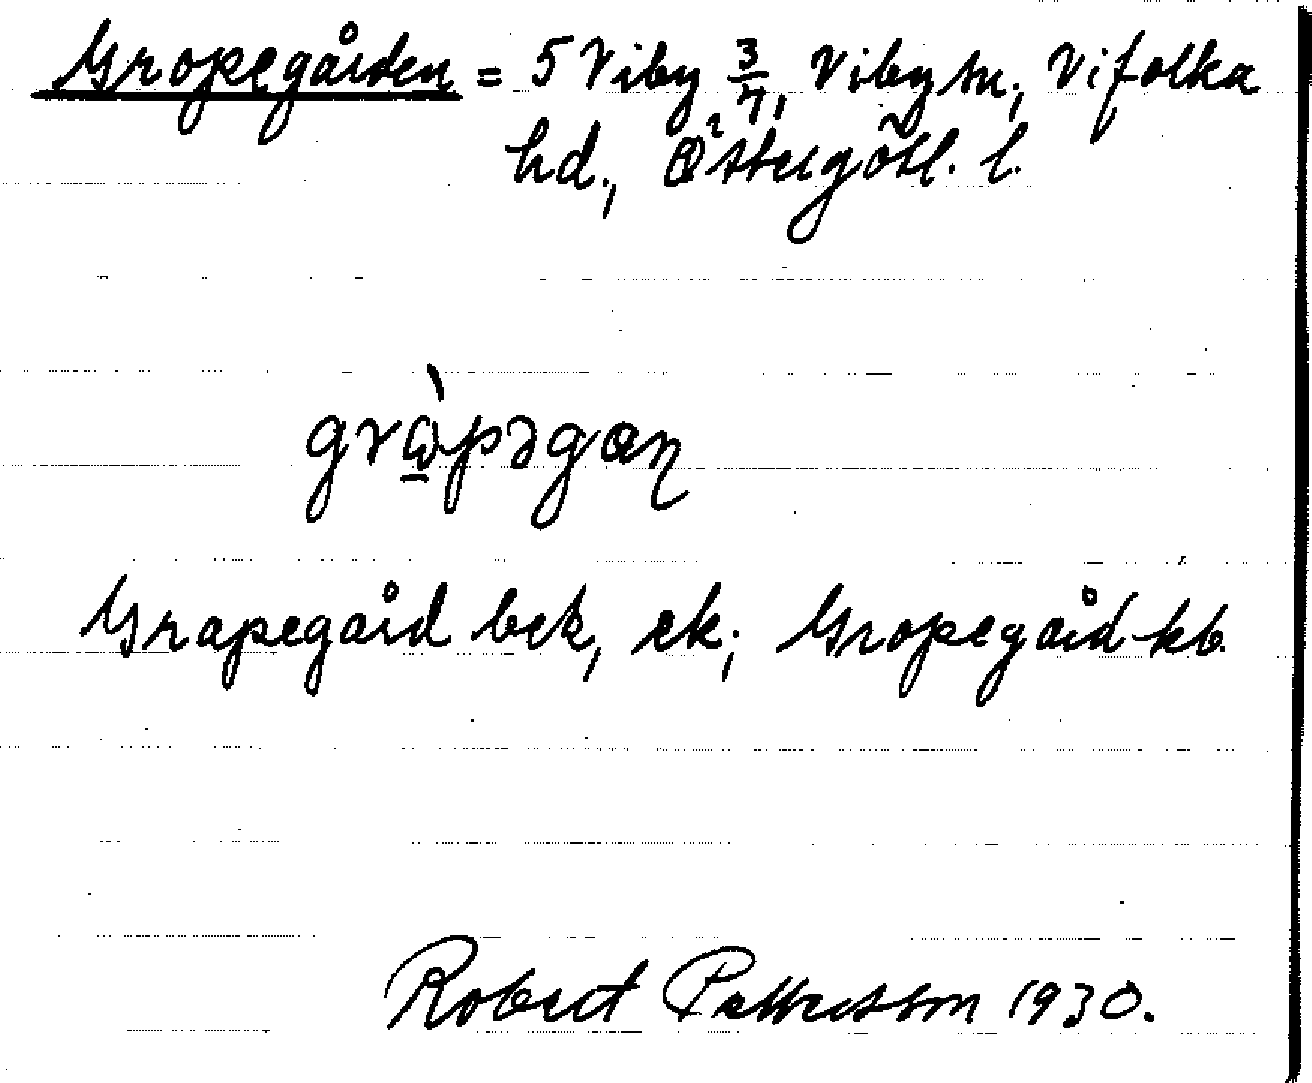 Gropegården = 5 Viby 3/4, Viby sn, Vifolka
hd., Östergötl. l.
grὼ̲pəgaɳ
Grapegård bck, ek; Gropegård kb.
Robert Pettersson 1930.